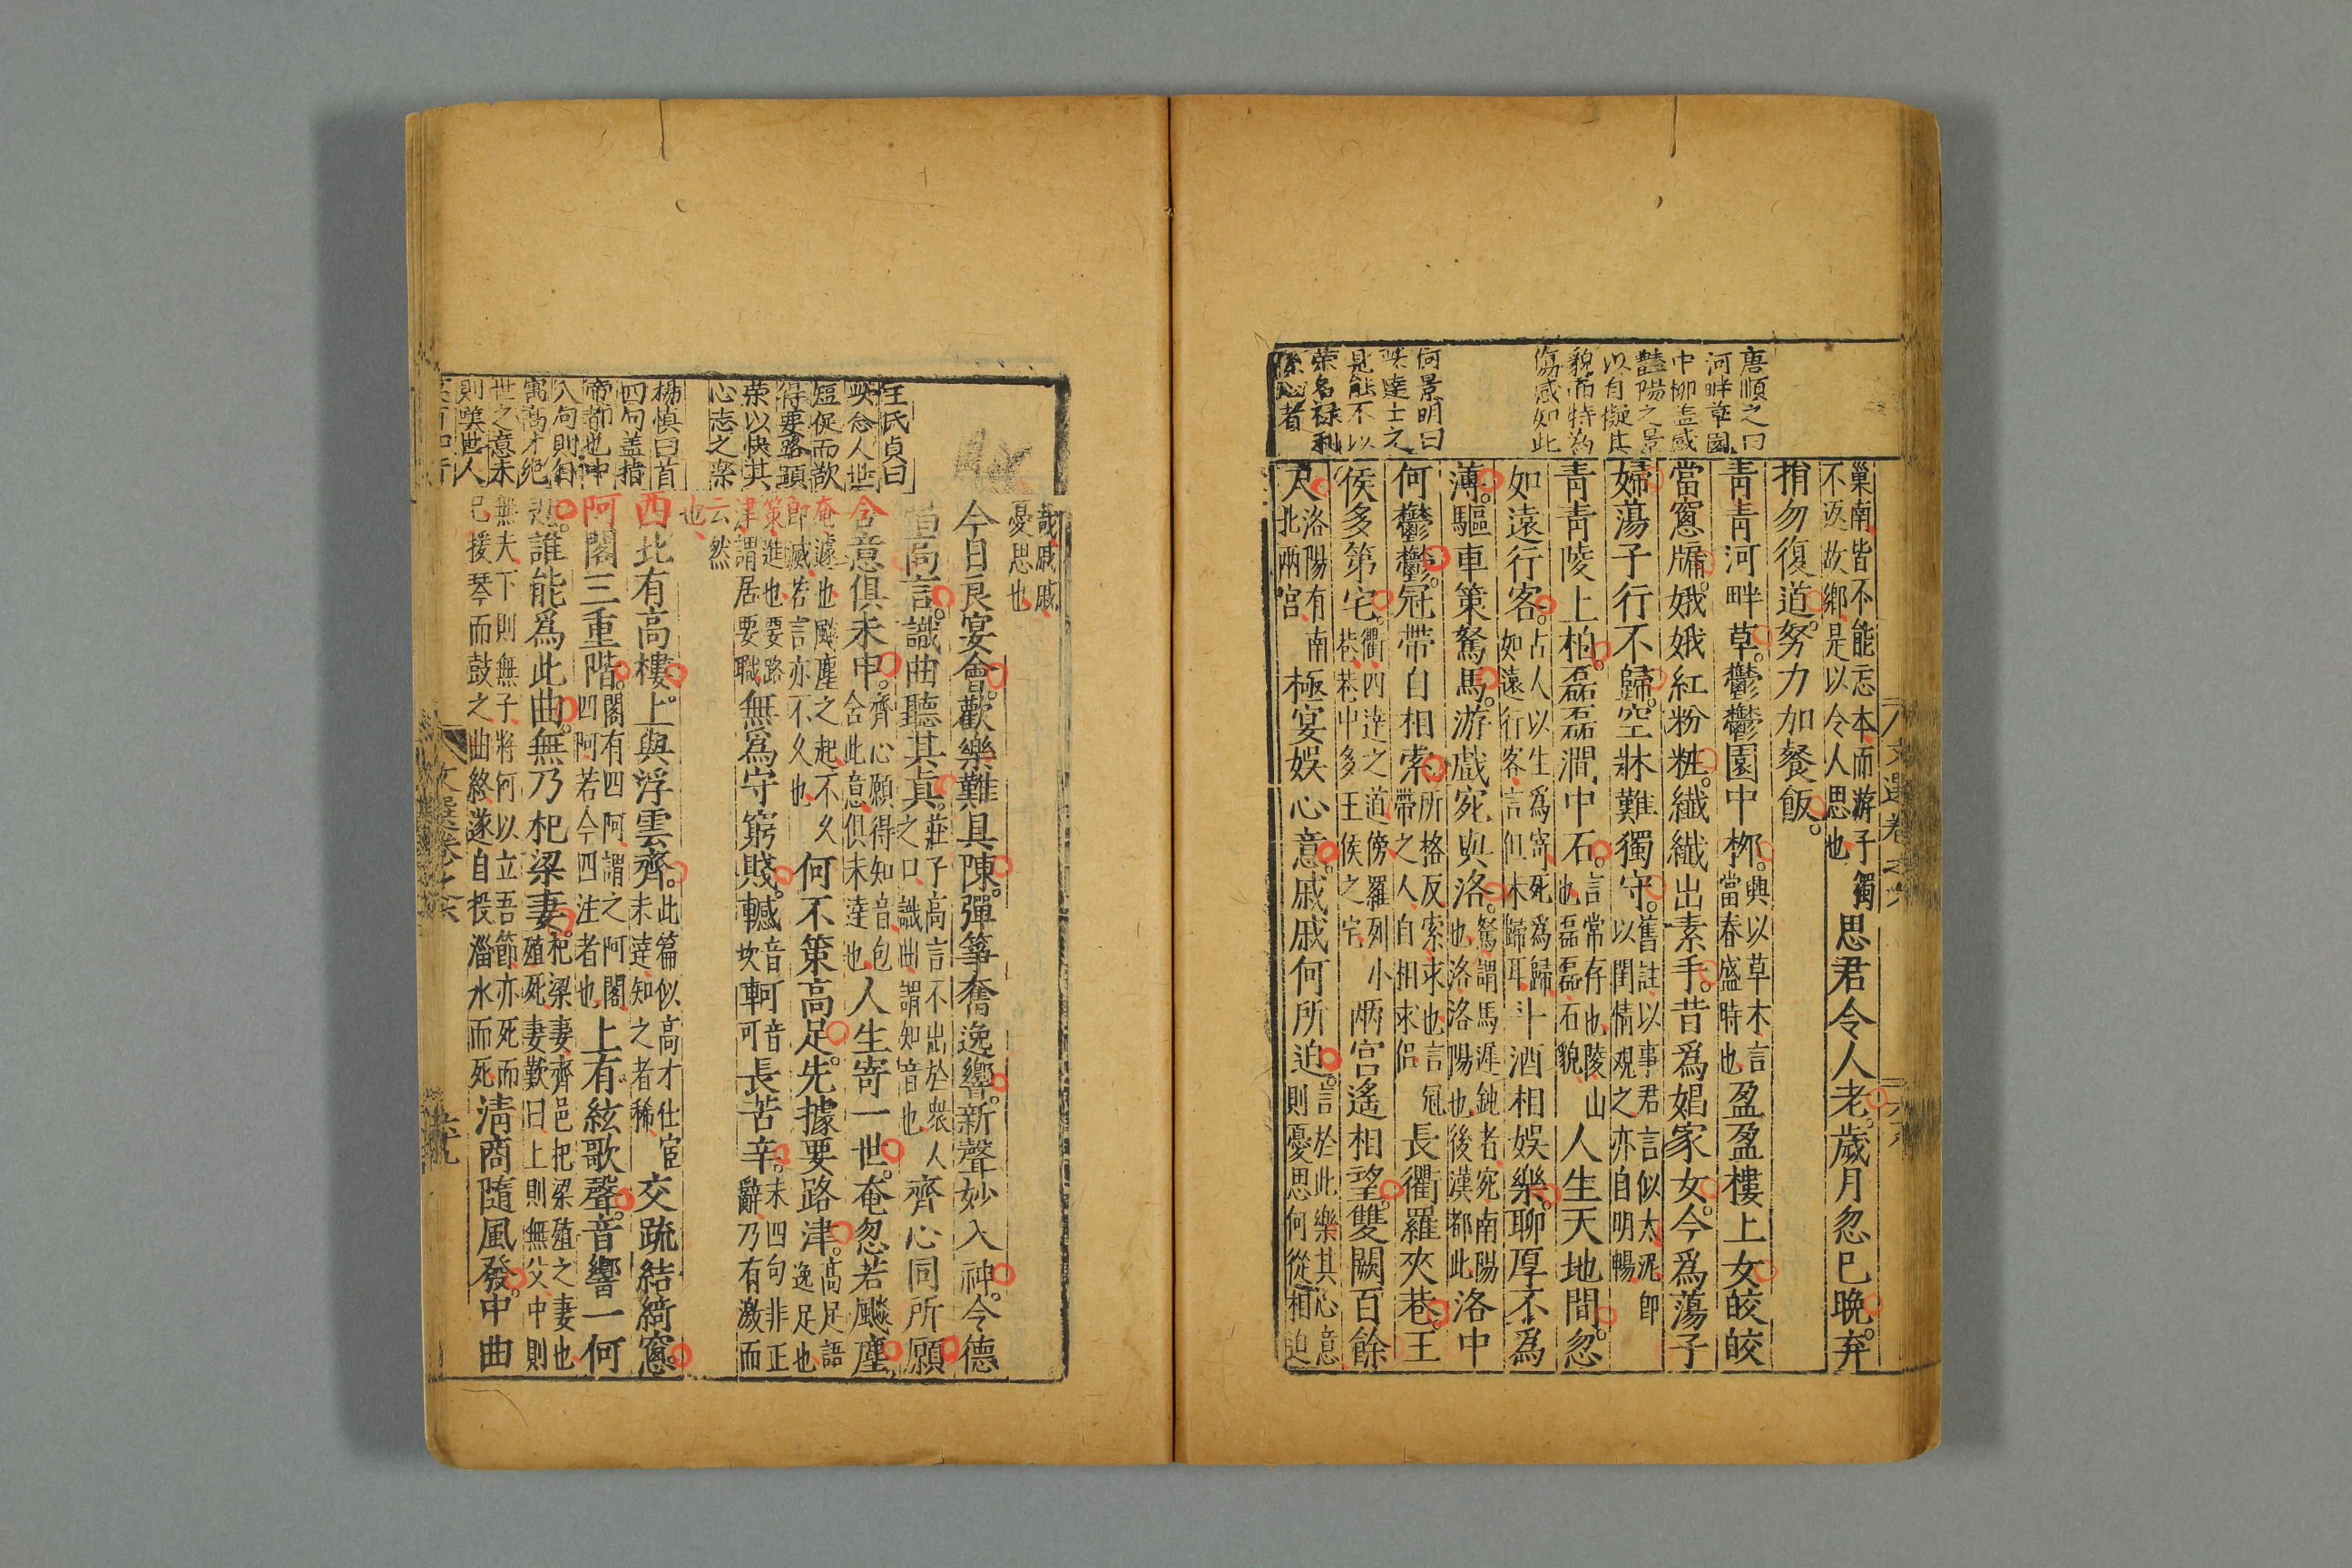 唐順之曰
河畔草園
中柳盖感
豔陽之景
以自擬其
貌而特為
傷感如此
何景明曰
此達士之
見能不以
榮名禄利
係心者
巢南皆不能忘本而游子獨
不返故鄉是以令人思也
思君令人老歲月忽已晚弃
捐勿復道努力加餐飯
青青河畔草鬱鬱園中柳
興以草木言
當春盛時也
盈盈樓上女皎皎
當窻牖娥娥紅粉粧纖纖出素手昔爲娼家女今爲蕩子
婦蕩子行不歸空牀難獨守
舊註以事君言似太泥卽
以閨情觀之亦自明暢
青青陵上柏磊磊澗中石
言常存也陵山
也磊磊石貌
人生天地間忽
如遠行客
占人以生爲寄死爲歸
如遠行客言但未歸耳
斗酒相娛樂聊厚不爲
薄驅車策駑馬游戲宛與洛
駑謂馬遲鈍者宛南陽
也洛洛陽也後漢都此
洛中
何鬱鬱冠帶自相索
所格反索求也言冠
帶之人自相求侣
長衢羅夾巷王
侯多第宅
衢四達之道傍羅列小
巷巷中多王侯之宅
兩宫遙相望雙闕百餘
尺
洛陽有南
北兩宫
極宴娛心意戚戚何所迫
言於此樂其心意
則憂思何從相迫
文選卷之六
汪氏貞曰
此念人世
短促而歆
得要路顕
榮以快其
心志之樂
楊慎曰首
四句盖指
帝都也中
八句則自
寓高才絶
世之意末
則嘆世人
哉戚戚
憂思也
今日良宴會歡樂難具陳彈箏奮逸響新聲妙入神令德
唱高言識曲聽其眞
莊子高言不出於衆人
之口識曲謂知音也
齊心同所願
含意俱未申
齊心願得知音包
含此意俱未達也
人生寄一世奄忽若飈塵
奄遽也飈塵之起不久
即滅若言亦不久也
何不策高足先據要路津
高足語
逸足也
策進也要路
津謂居要職
無爲守窮賤轗
音
坎
軻
音
可
長苦辛
末四句非正
辭乃有激而
云然
也
西北有高樓上與浮雲齊
此篇似高才仕宦
未達知之者稀
交疏結綺窻
阿閣三重階
閣有四阿謂之阿閣
四阿若今四注者也
上有絃歌聲音響一何
悲誰能爲此曲無乃杞梁妻
杞梁妻齊邑杞梁殖之妻也
殖死妻歎曰上則無父中則
無夫下則無子將何以立吾節亦死而
已援琴而鼓之曲終遂自投淄水而死
清商隨風發中曲
文選卷之六